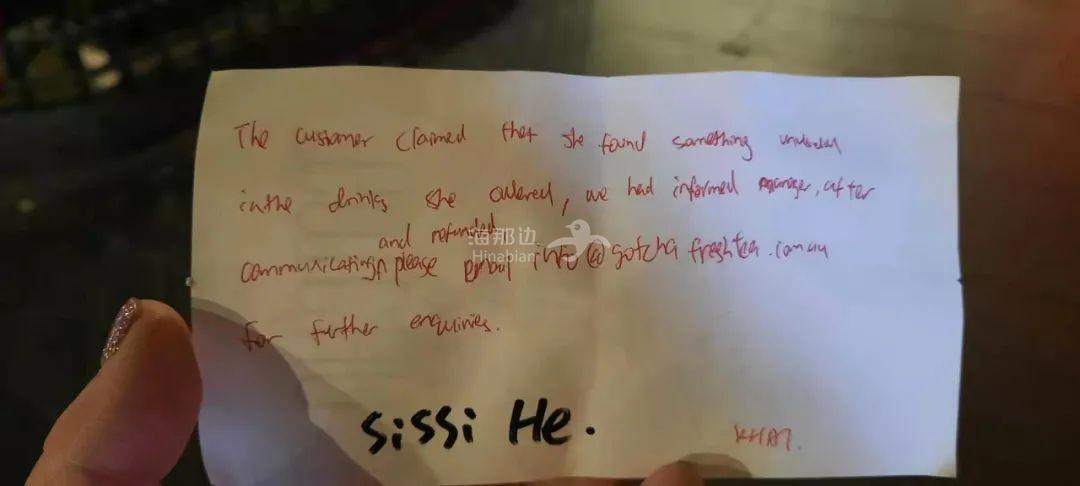 The customer claimed that she found something
in the drinks she ordered, we had informed manager, after
and refunded
communicating, please email info@gotchafreshtea.com.au
for further enquiries.
sissi He.
KHAI.
海那边
Hinabian